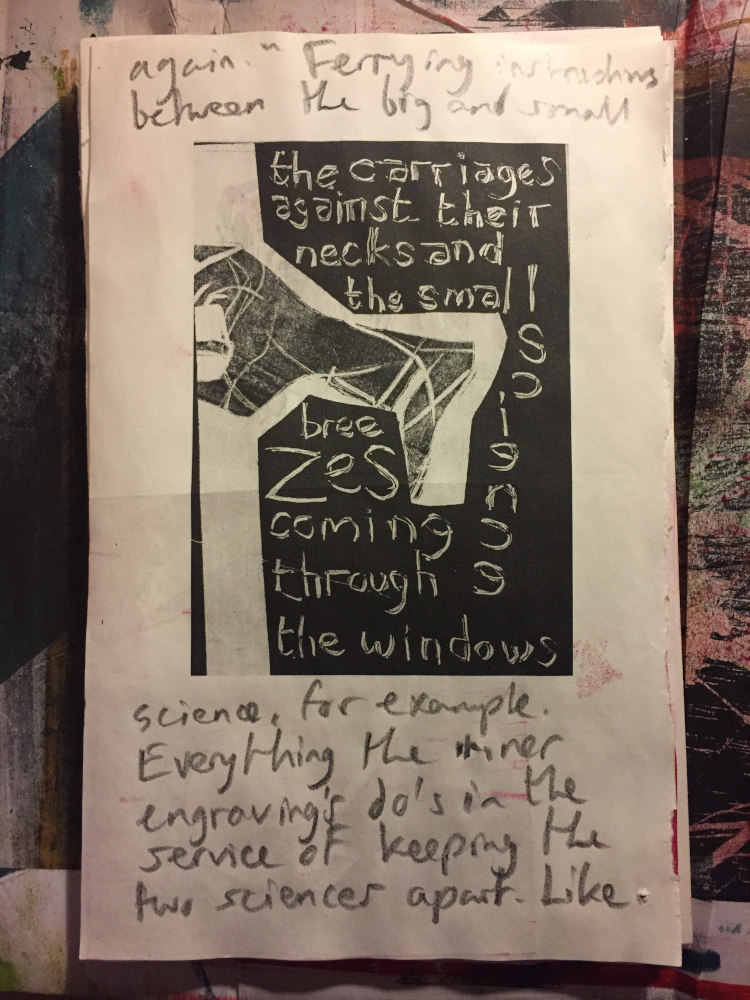 again." Ferrying instructions
between the big and small
the carriages
against their
necks and
the small
science
bree
zes
coming
through
the windows
science, for example.
Everything the miner
engraving's do's in the
service of keeping the
two sciences apart. Like.